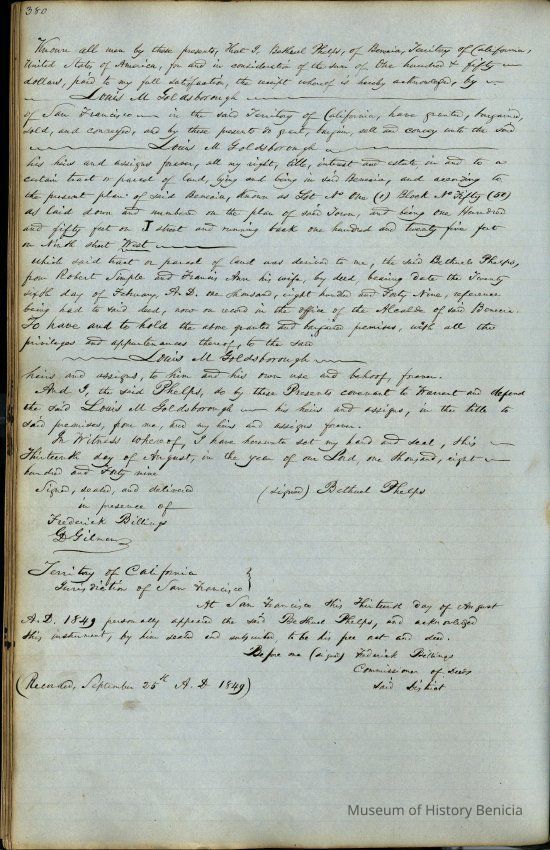 380
Known all men by these presents, that I, Bethuel Phelps, of Benicia, Territory of California,
United States of America, for and in consideration of the sum of One hundred & fifty
dollars, paid to my full satisfaction, the receipt whereof is hereby acknowledged, by
Louis M Goldsborough
of San Francisco in the said Territory of California, have granted, bargained,
sold, and conveyed, and by these present do grant, bargain, sell and convey unto the said
Louis M Goldsborough
his heirs and assigns forever, all my right, title, interest and estate in and to a
certain tract or parcel of land, lying and being in said Benicia, and according to
the present plan of said Benicia, known as Lot No One (1) Block No Fifty (50)
as laid down and numbered on the plan of said Town, and being one Hundred
and fifty feet on I street and running back one hundred and twenty five feet
on North street West
which said tract or parcel of land was deeded to me, the said Bethuel Phelps,
from Robert Semple and Francis Ann his wife, by deed, bearing date the Twenty
sixth day of February, A.D. one thousand, eight hundred and Forty Nine, reference
being had to said deed, now on record in the office of the Alcalde of said Benicia.
To have and to hold the above granted and bargained premises, with all the
privileges and appurtenances thereof, to the said
Louis M Goldsborough
heirs and assigns, to him and his own use and behoof, forever.
And I, the said Phelps, do by these Presents covenant to Warrant and defend
the said Louis M Goldsborough his heirs and assigns, in the title to
said premises, from me, and my heirs and assigns forever.
In Witness whereof, I have hereunto set my hand and seal, this
Thirteenth day of August, in the year of our Lord, one thousand, eight
hundred and Forty nine
Signed, sealed, and delivered (signed) Bethuel Phelps
in presence of
Frederick Billings
Gilman
Territory of California
Jurisdiction of San Francisco
At San Francisco this Thirteenth day of August
A.D. 1849 personally appeared the said Bethuel Phelps, and acknowledged
this instrument, by him sealed and subscribed, to be his free act and deed.
Before me (signed) Frederick Billings
Commissioner of deeds
said District
(Recorded, September 25th A.D 1849)
Museum of History Benicia